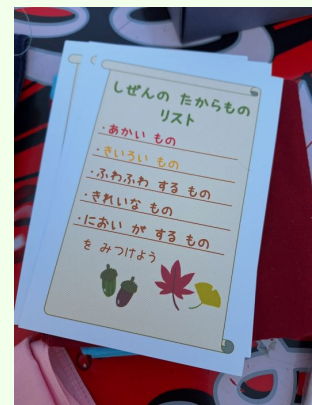 しぜんの たからもの
リスト
・あかい もの
・きいろい もの
・ふわふわ する もの
・きれいな もの
・におい が する もの
を みつけよう